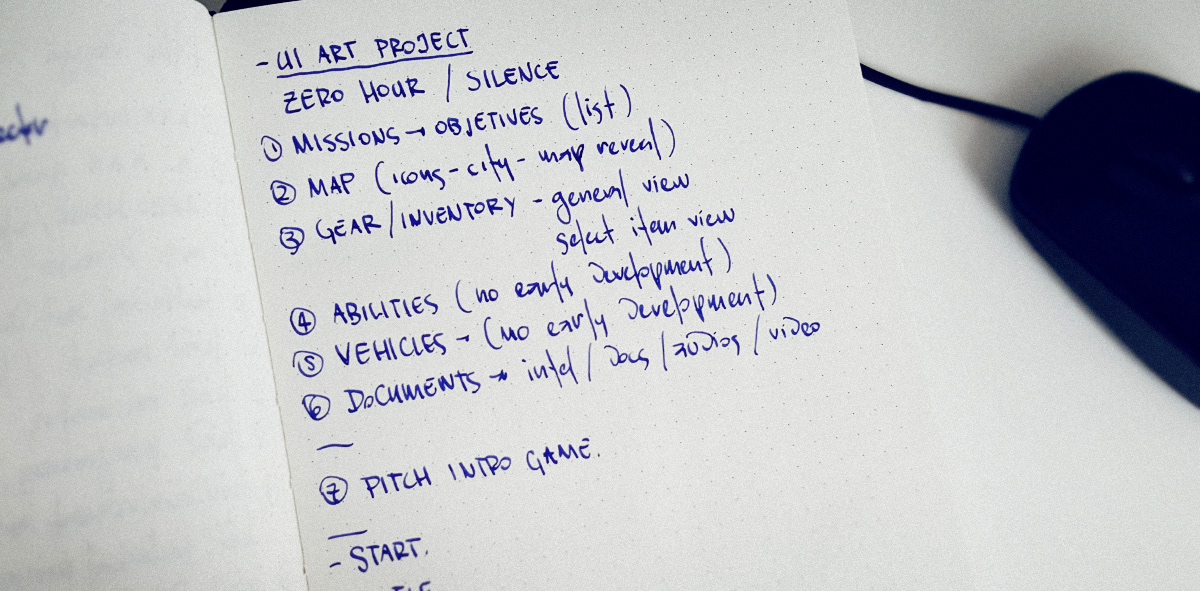 - UI ART PROJECT
ZERO HOUR / SILENCE
① MISSIONS → OBJETIVES (list)
② MAP (icons - city - map reveal)
③ GEAR/INVENTORY - general view
select item view
④ ABILITIES (no early Development)
⑤ VEHICLES → (no early Development)
⑥ DOCUMENTS → intel / Docs / audios / video
—
⑦ PITCH INTRO GAME.
—
- START.